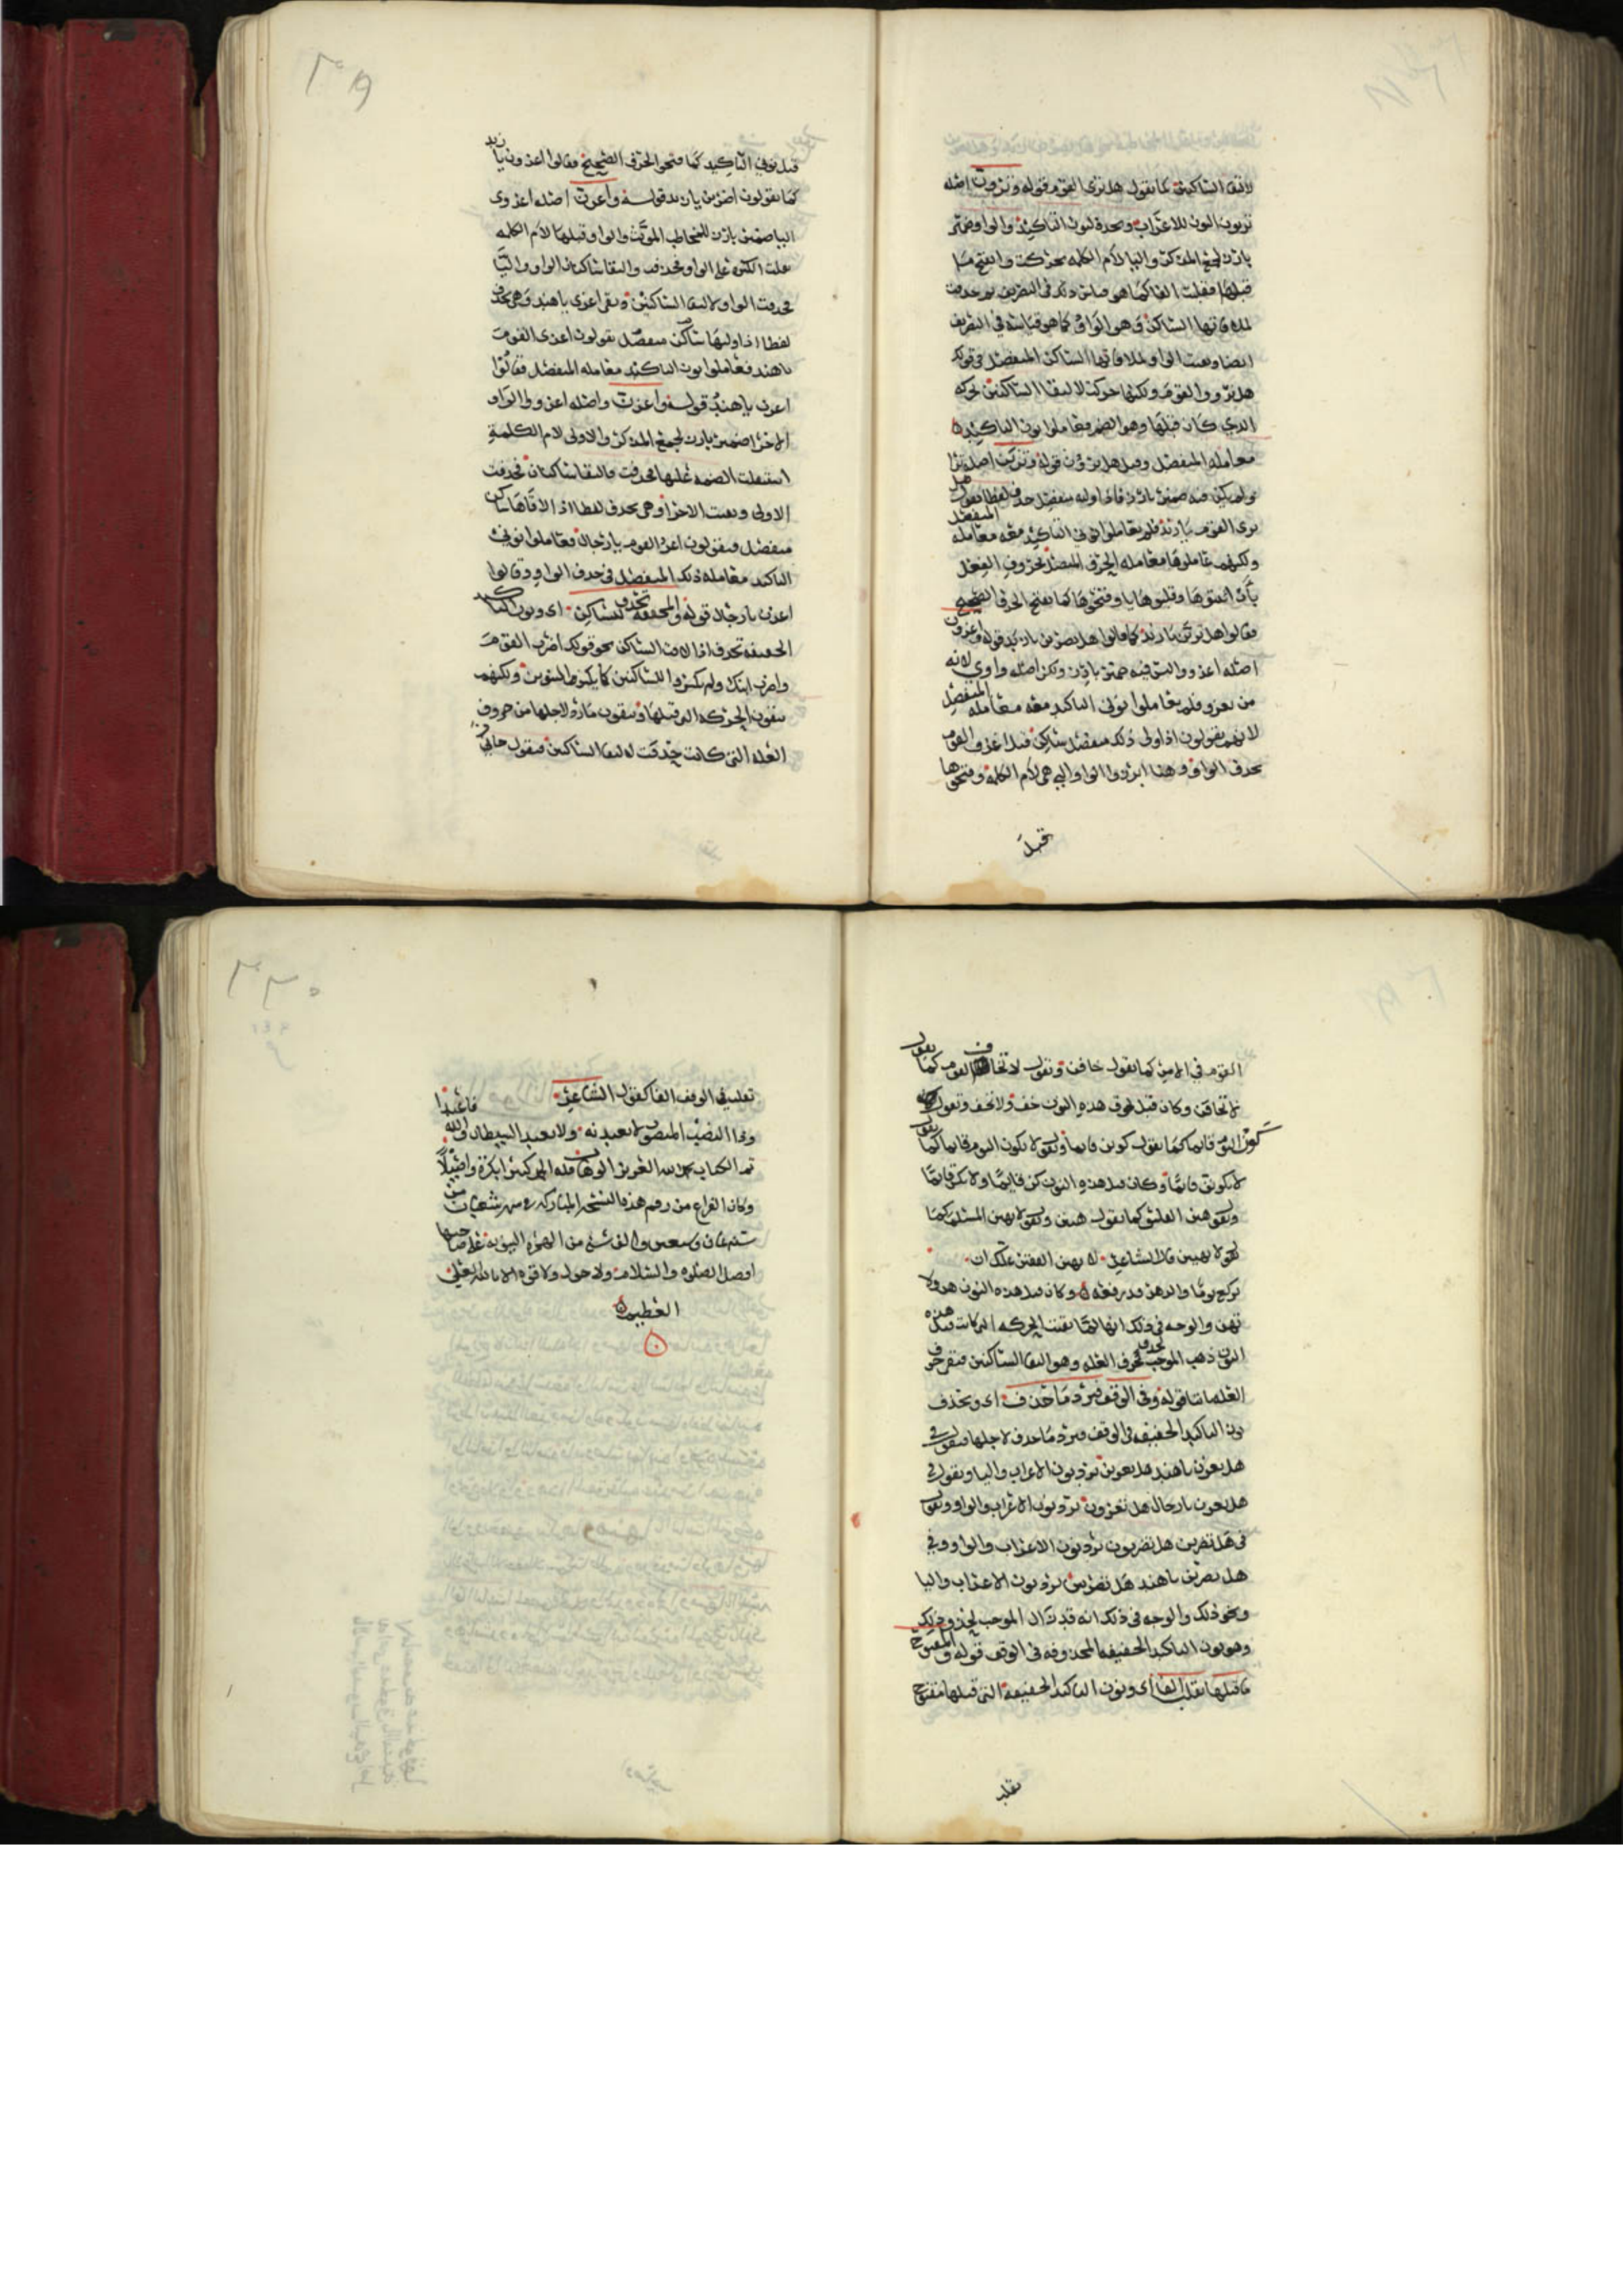 لالتقا الساكنين كما تقول هل ترى القوم قوله وترون اصله
تريون النون للاعراب وبعده لنون التاكيد والواو ضمير
بارز لجمع المذكر واليا لام الكلمه تحركت وانفتح ما
قبلها فقلبت الفا كما هو قياس ذلك في التصريف ثم حذفت
لملاقاتها الساكن وهو الواو كما هو قياسه في التصريف
ايضا وبقيت الواو لملاقاتها الساكن المنفصل في قولك
هل تروا القوم ولكنها حركت لالتقا الساكنين بحركه
الذي كان قبلها وهو الضم فعاملوا نون التاكيد
معامله المنفصل وقيل هل ترون قوله وترين اصله ترا
ولم يكن فيه ضمير بارز فاذا وليه منفصل حذف لفظا تقول هل
ترى القوم يا زيد فلم يعاملوا نوني التاكيد معه معامله المنفصل
ولكنهم عاملوها معامله الحرف المتصل بحروف الفعل
بأن اثبتوها وقلبوها يا وفتحوها كما يفتح الحرف الصحيح
فقالوا هل ترين يا زيد كما قالوا هل تضربن يا زيد قوله واغزون
اصله اغزو وليس فيه ضمير بارز ولكن اصله واوي لانه
من يغزو فلم يعاملوا نوني التاكيد معه معامله المنفصل
لانهم يقولون اذا ولى ذلك منفصل ساكن قيل اغز القوم
بحذف الواو وهنا ابرزوا الواو التي هي لام الكلمه وفتحوها
قبل
قبل نوني التاكيد كما فتحوا الحرف الصحيح فقالوا اغزون يا زيد
كما يقولون اضربن يا زيد قوله واغزن اصله اغزوى
اليا ضمير بارز للمخاطب المونث والواو قبلها لام الكلمه
نقلت الكسره على الواو فحذفت والتقا ساكنان الواو واليا
فحذفت الواو لالتقا الساكنين وبقي اغزي يا هند وهي تحذف
لفظا اذا وليها ساكن منفصل يقولون اغزى القوم
يا هند فعاملوا نون التاكيد معامله المنفصل فقالوا
اغزن يا هند قوله واغزن واصله اغزووا الواو
الاخرا ضمير بارز لجمع المذكر والاولى لام الكلمة
استثقلت الضمه عليها فحذفت والتقا ساكنان فحذفت
الاولى وبقيت الاخرا وهي تحذف لفظا اذا لاقاها ساكن
منفصل فيقولون اغزو القوم يا رجال فعاملوا نوني
التاكيد معامله ذلك المنفصل في حذف الواو وقالوا
اغزن يا رجال قوله والمخففه تحذف للساكن اي ونون التاكيد
الخفيفه تحذف اذا لاقت الساكن نحو قولك اضرب القوم
واضرب ابنك ولم يكسروا للساكنين كما يكسر التنوين ولكنهم
يبقون الحركه التي قبلها ويبقون ما رد لاجلها من حروف
العله التي كانت حذفت لالتقا الساكنين فيقول خافن
القوم في الامر كما تقول خافن وتقول لا تخافن القوم كما تقول
لا تخافن وكان قبل لحوق هذه النون خف ولا تخف وتقول
كون اليوم قايما كما تقول كونن قايما وتقول لا تكون اليوم قايما كما تقول
لا تكونن قايما وكان قبل هذه النون كن قايما ولا تكن قايما
وتقول هين الفاسق كما تقول هينن وتقول لا تهين المسلم كما
تقول لا تهينن قال الشاعر لا تهين الفقير علك ان
تركع يوما والدهر قد رفعه وكان قبل هذه النون هن ولا
تهن والوجه في ذلك انها لما بقيت الحركه التي كانت قبل هذه
النون ذهب الموجب لحذف حرف العله وهو التقا الساكنين فبقي حرف
العله ثابتا قوله وفي الوقف فيرد ما حذف اي وتحذف
نون التاكيد الخفيفه في الوقف فيرد ما حذف لاجلها فتقول في
هل تغزن يا هند هل تغزين برد نون الاعراب واليا وتقول في
هل تغزن يا رجال هل تغزون برد نون الاعراب والواو وتقول
في هل تضربن هل تضربون برد نون الاعراب والواو وفي
هل تضربن يا هند هل تضربين برد نون الاعراب واليا
ونحو ذلك والوجه في ذلك انه قد زال الموجب لحذف ذلك
وهو نون التاكيد الخفيفه المحذوفه في الوقف قوله والمفتوح
ما قبلها تقلب الفا اي ونون التاكيد الخفيفه التي قبلها مفتوح
تقلب
تقلب في الوقف الفا كقول الشاعر
وذا النصب المنصوب لا تعبدنه ولا تعبد الشيطان والله فاعبدا
تم الكتاب بحمد الله العزيز الوهاب فله الحمد كثيرا بكرة واصيلا
وكان الفراغ من رقم هذه النسخه المباركه في شهر شعبان من
سنه ثمان وسبعين والف سنه من الهجره النبويه على صاحبها
افضل الصلوه والسلام ولا حول ولا قوه الا بالله العلي
العظيم